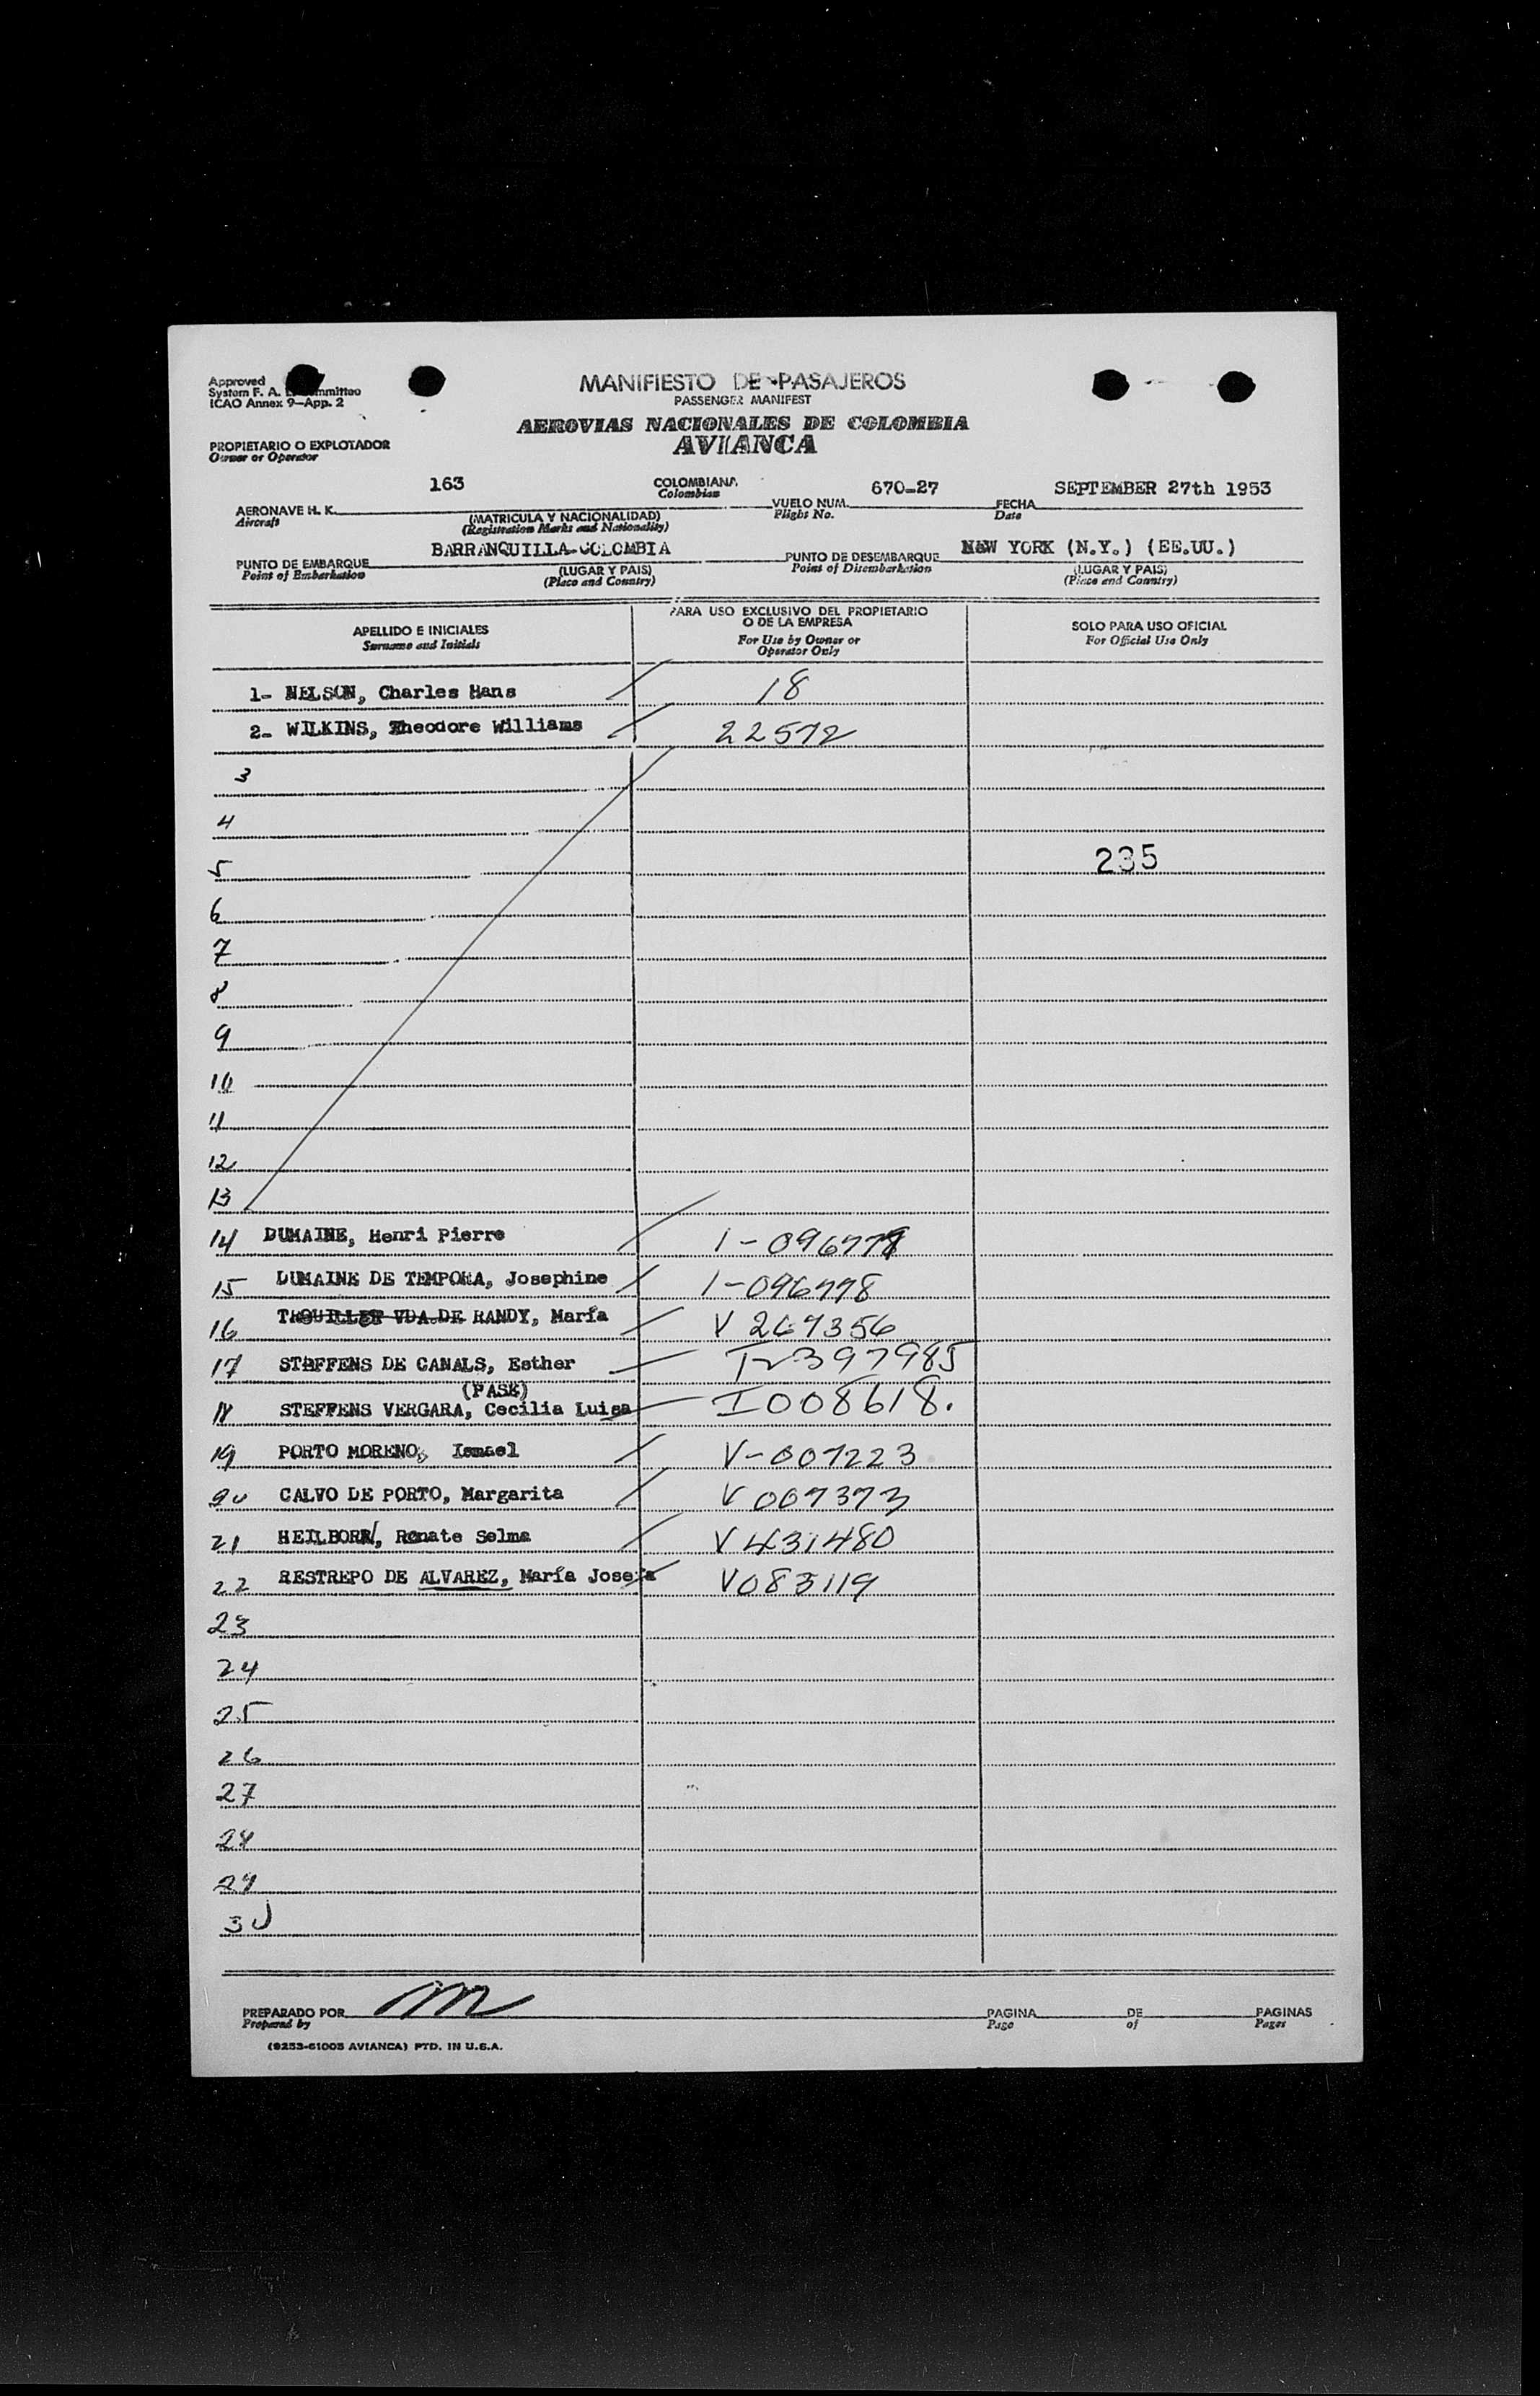 Approved
System F. A. L. Committee
ICAO Annex 9-App. 2
MANIFIESTO DE PASAJEROS
PASSENGER MANIFEST
AEROVIAS NACIONALES DE COLOMBIA
AVIANCA
PROPIETARIO O EXPLOTADOR
Owner or Operator
AERONAVE H. K. 163 COLOMBIANA
Aircraft Colombian
(MATRICULA Y NACIONALIDAD)
(Registration Marks and Nationality)
VUELO NUM. 670-27
Flight No.
FECHA SEPTEMBER 27th 1953
Date
PUNTO DE EMBARQUE BARRANQUILLA-COLOMBIA
Point of Embarkation
(LUGAR Y PAIS)
(Place and Country)
PUNTO DE DESEMBARQUE NEW YORK (N.Y.) (EE.UU.)
Point of Disembarkation
(LUGAR Y PAIS)
(Place and Country)
APELLIDO E INICIALES
Surname and Initials
PARA USO EXCLUSIVO DEL PROPIETARIO
O DE LA EMPRESA
For Use by Owner or
Operator Only
SOLO PARA USO OFICIAL
For Official Use Only
1- NELSON, Charles Hans 18
2- WILKINS, Theodore Williams 22572
3
4
5 235
6
7
8
9
10
11
12
13
14 DUMAINE, Henri Pierre 1-096779
15 DUMAINE DE TEMPORA, Josephine 1-096778
16 TROUILLET VDA.DE RANDY, María V 267356
17 STEFFENS DE CANALS, Esther 397985
(PASE)
18 STEFFENS VERGARA, Cecilia Luisa I008618.
19 PORTO MORENO, Ismael V-007223
20 CALVO DE PORTO, Margarita V 007373
21 HEILBORN, Renate Selma V 431480
22 RESTREPO DE ALVAREZ, María Josefa V083119
23
24
25
26
27
28
29
30
PREPARADO POR
Prepared by
PAGINA DE PAGINAS
Page of Pages
(9253-61005 AVIANCA) PTD. IN U.S.A.